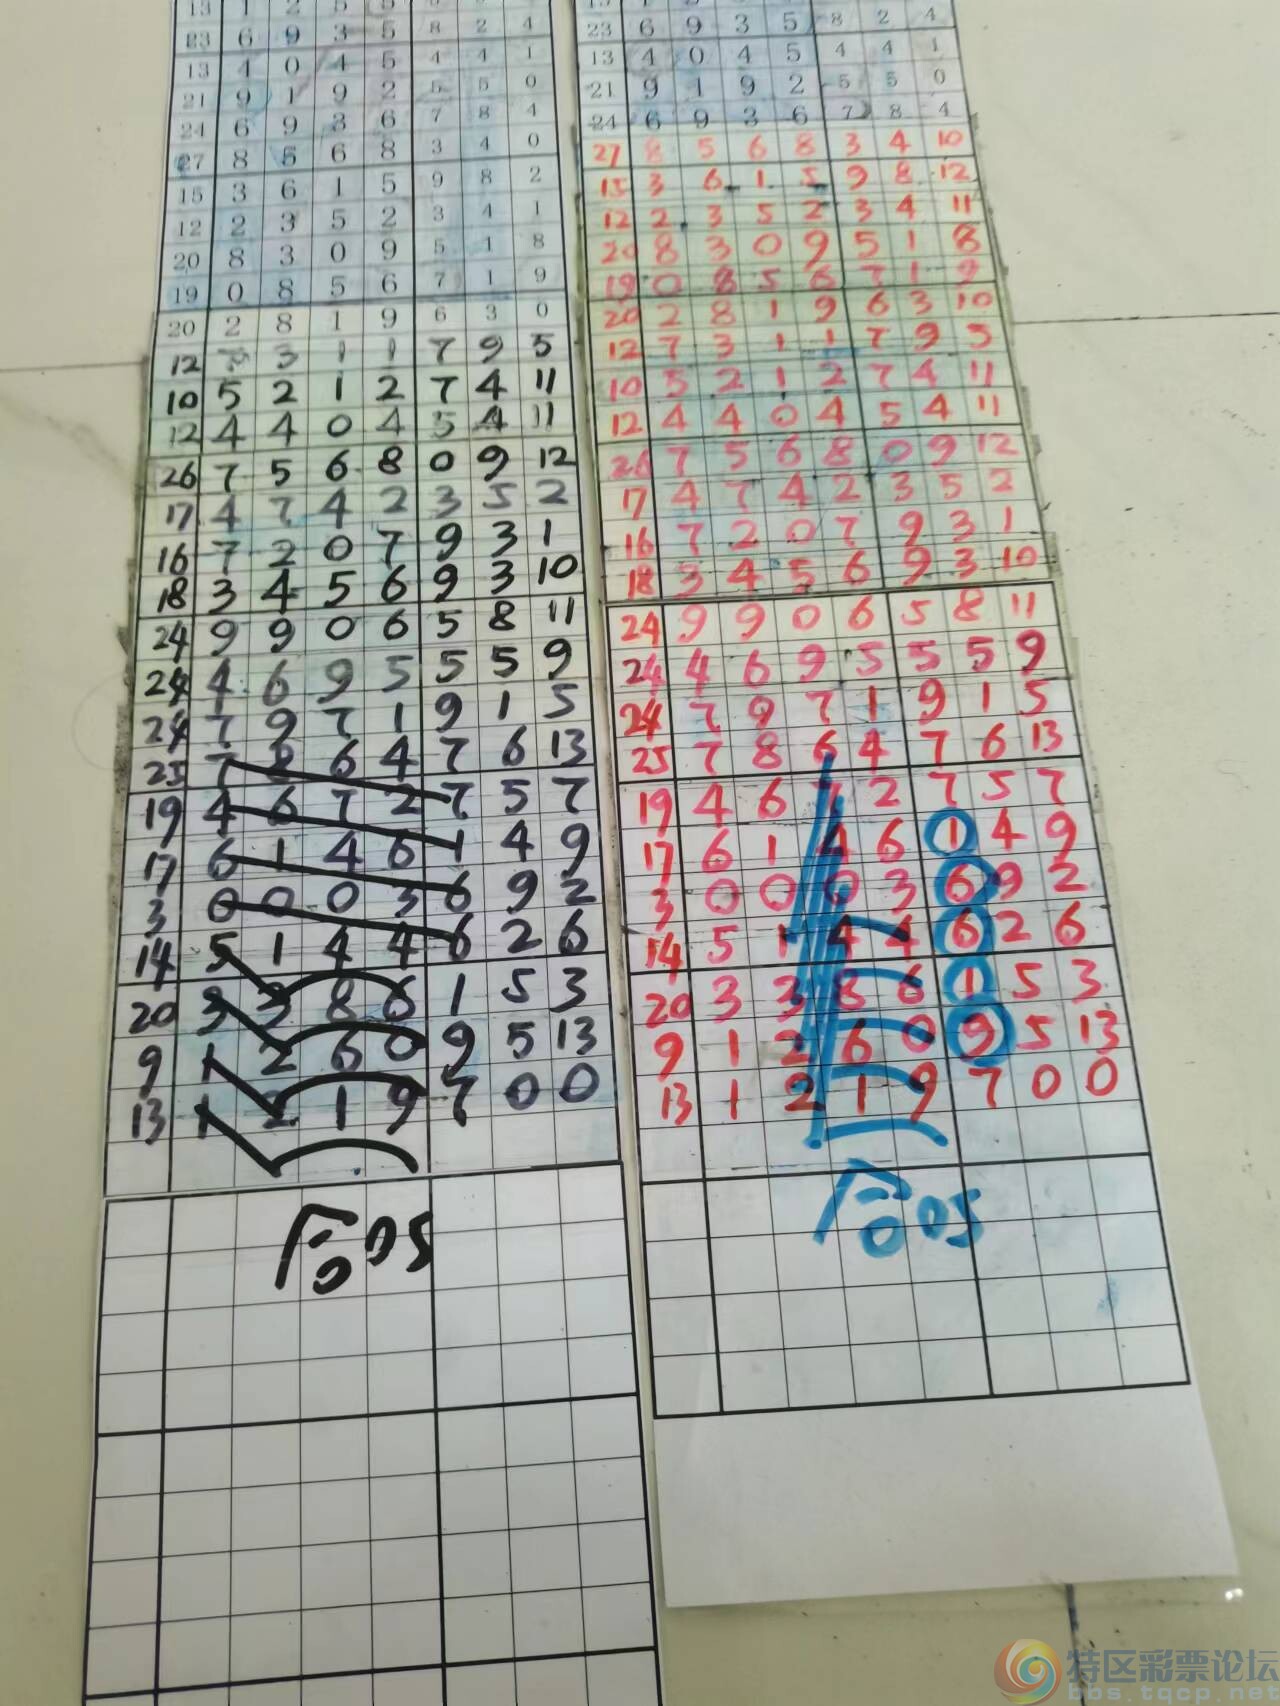 23 6 9 3 5 8 2 4
13 4 0 4 5 4 4 1
21 9 1 9 2 5 5 0
24 6 9 3 6 7 8 4
27 8 5 6 8 3 4 0
15 3 6 1 5 9 8 2
12 2 3 5 2 3 4 1
20 8 3 0 9 5 1 8
19 0 8 5 6 7 1 9
20 2 8 1 9 6 3 0
12 7 3 1 1 7 9 5
10 5 2 1 2 7 4 11
12 4 4 0 4 5 4 11
26 7 5 6 8 0 9 12
17 4 7 4 2 3 5 2
16 7 2 0 7 9 3 1
18 3 4 5 6 9 3 10
24 9 9 0 6 5 8 11
24 4 6 9 5 5 5 9
24 7 9 7 1 9 1 5
25 7 8 6 4 7 6 13
19 4 6 7 2 7 5 7
17 6 1 4 6 1 4 9
3 0 0 0 3 6 9 2
14 5 1 4 4 6 2 6
20 3 3 8 6 1 5 3
9 1 2 6 0 9 5 13
13 1 2 1 9 7 0 0
05
23 6 9 3 5 8 2 4
13 4 0 4 5 4 4 1
21 9 1 9 2 5 5 0
24 6 9 3 6 7 8 4
27 8 5 6 8 3 4 10
15 3 6 1 5 9 8 12
12 2 3 5 2 3 4 11
20 8 3 0 9 5 1 8
19 0 8 5 6 7 1 9
20 2 8 1 9 6 3 10
12 7 3 1 1 7 9 5
10 5 2 1 2 7 4 11
12 4 4 0 4 5 4 11
26 7 5 6 8 0 9 12
17 4 7 4 2 3 5 2
16 7 2 0 7 9 3 1
18 3 4 5 6 9 3 10
24 9 9 0 6 5 8 11
24 4 6 9 5 5 5 9
24 7 9 7 1 9 1 5
25 7 8 6 4 7 6 13
19 4 6 7 2 7 5 7
17 6 1 4 6 1 4 9
3 0 0 0 3 6 9 2
14 5 1 4 4 6 2 6
20 3 3 8 6 1 5 3
9 1 2 6 0 9 5 13
13 1 2 1 9 7 0 0
05
特区彩票论坛
bbs.tqcp.net